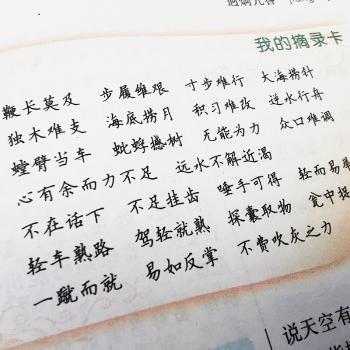 我的摘录卡
鞭长莫及 步履维艰 寸步难行 大海捞针
独木难支 海底捞月 积习难改 逆水行舟
螳臂当车 蚍蜉撼树 无能为力 众口难调
心有余而力不足 远水不解近渴
不在话下 不足挂齿 唾手可得 轻而易举
轻车熟路 驾轻就熟 探囊取物 瓮中捉
一蹴而就 易如反掌 不费吹灰之力
说天空有